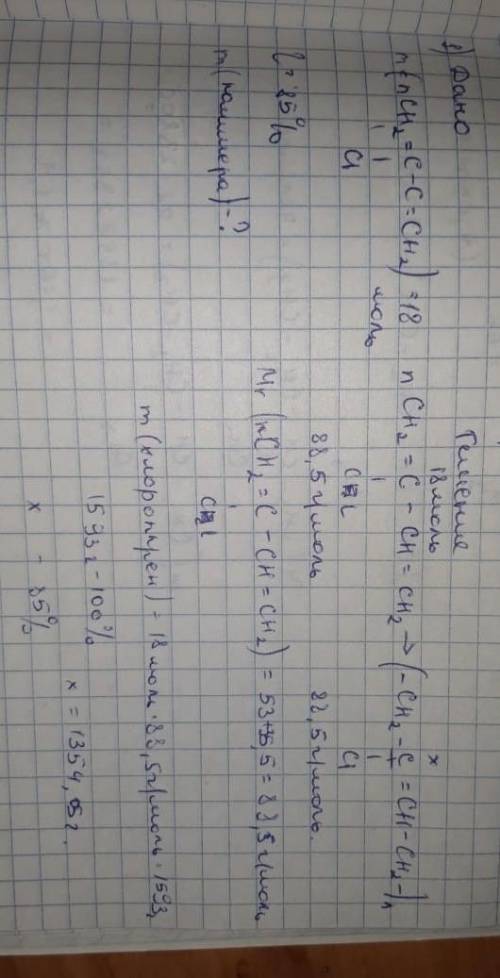 8) Дано
m(nCH₂ = C - C = CH₂) = 18 моль
Cl
η = 85%
m(полимера) - ?
Решение
18 моль x
nCH₂ = C - CH = CH₂ → (-CH₂ - C = CH - CH₂-)n
Cl Cl
88,5 г/моль 88,5 г/моль.
Mr (nCH₂ = C - CH = CH₂) = 53+35,5 = 88,5 г/моль
Cl
m(хлоропрен) = 18 моль · 88,5 г/моль = 1593г
1593г - 100%
x - 85%
x = 1354,05г.